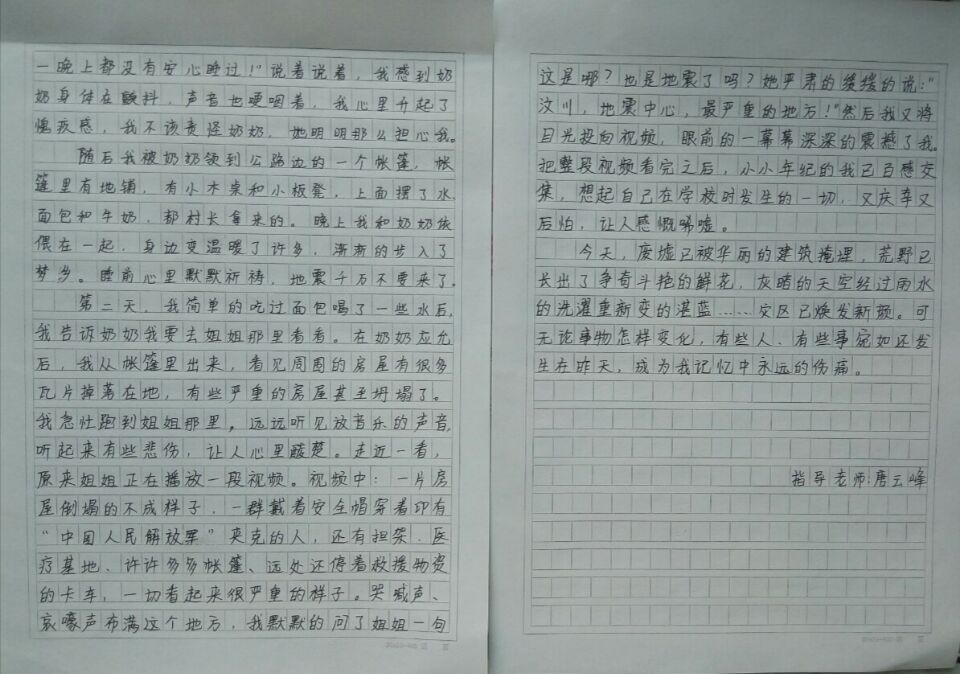 一晚上都没有安心睡过！"说着说着，我感到奶
奶身体在颤抖，声音也哽咽着，我心里升起了
愧疚感，我不该责怪奶奶，她明明那么担心我。
随后我被奶奶领到公路边的一个帐篷，帐
篷里有地铺，有小木桌和小板凳，上面摆了水、
面包和牛奶，都村长拿来的。晚上我和奶奶依
偎在一起，身边变温暖了许多，渐渐的步入了
梦乡。睡前心里默默祈祷，地震千万不要来了。
第二天，我简单的吃过面包喝了一些水后，
我告诉奶奶我要去姐姐那里看看。在奶奶应允
后，我从帐篷里出来，看见周围的房屋有很多
瓦片掉落在地，有些严重的房屋甚至坍塌了。
我急忙跑到姐姐那里，远远听见放音乐的声音，
听起来有些悲伤，让人心里酸楚。走近一看，
原来姐姐正在播放一段视频。视频中：一片房
屋倒塌的不成样子，一群戴着安全帽穿着印有
"中国人民解放军"夹克的人，还有担架、医
疗基地、许许多多帐篷、远处还停着救援物资
的卡车，一切看起来很严重的样子。哭喊声、
哀嚎声布满这个地方，我默默的问了姐姐一句
这是哪？也是地震了吗？她严肃的缓缓的说："
汶川，地震中心，最严重的地方！"然后我又将
目光投向视频，眼前的一幕幕深深的震撼了我。
把整段视频看完之后，小小年纪的我已百感交
集，想起自己在学校时发生的一切，又庆幸又
后怕，让人感慨唏嘘。
今天，废墟已被华丽的建筑掩埋，荒野已
长出了争奇斗艳的鲜花，灰暗的天空经过雨水
的洗濯重新变的湛蓝……灾区已焕发新颜。可
无论事物怎样变化，有些人、有些事宛如还发
生在昨天，成为我记忆中永远的伤痛。
指导老师：唐云峰